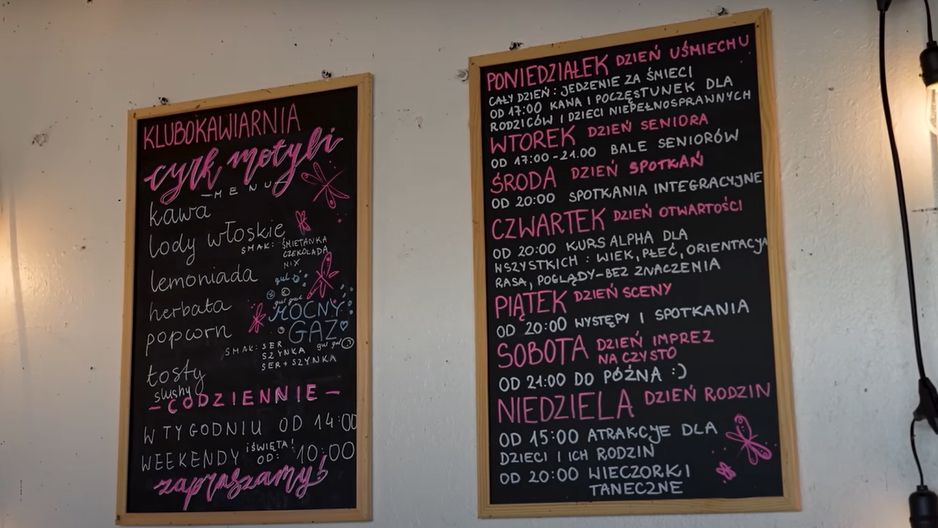 KLUBOKAWIARNIA
cyrk motyli
– MENU
kawa
lody włoskie
SMAK: ŚMIETANKA
CZEKOLADA
MIX
lemoniada
herbata
popcorn
gul
gul gul
MOCNY
GAZ
gul gul
tosty
SMAK: SER
SZYNKA
SER+SZYNKA
slushy
– CODZIENNIE –
W TYGODNIU OD 14:00
WEEKENDY I ŚWIĘTA! OD: 10:00
zapraszamy!
PONIEDZIAŁEK DZIEŃ UŚMIECHU
CAŁY DZIEŃ: JEDZENIE ZA ŚMIECI
OD 17:00 KAWA I POCZĘSTUNEK DLA
RODZICÓW I DZIECI NIEPEŁNOSPRAWNYCH
WTOREK DZIEŃ SENIORA
OD 17:00-21.00 BALE SENIORÓW
ŚRODA DZIEŃ SPOTKAŃ
OD 20:00 SPOTKANIA INTEGRACYJNE
CZWARTEK DZIEŃ OTWARTOŚCI
OD 20:00 KURS ALPHA DLA
WSZYSTKICH: WIEK, PŁEĆ, ORIENTACJA
RASA, POGLĄDY-BEZ ZNACZENIA
PIĄTEK DZIEŃ SCENY
OD 20:00 WYSTĘPY I SPOTKANIA
SOBOTA DZIEŃ IMPREZ
NA CZYSTO
OD 21:00 DO PÓŹNA :)
NIEDZIELA DZIEŃ RODZIN
OD 15:00 ATRAKCJE DLA
DZIECI I ICH RODZIN
OD 20:00 WIECZORKI
TANECZNE